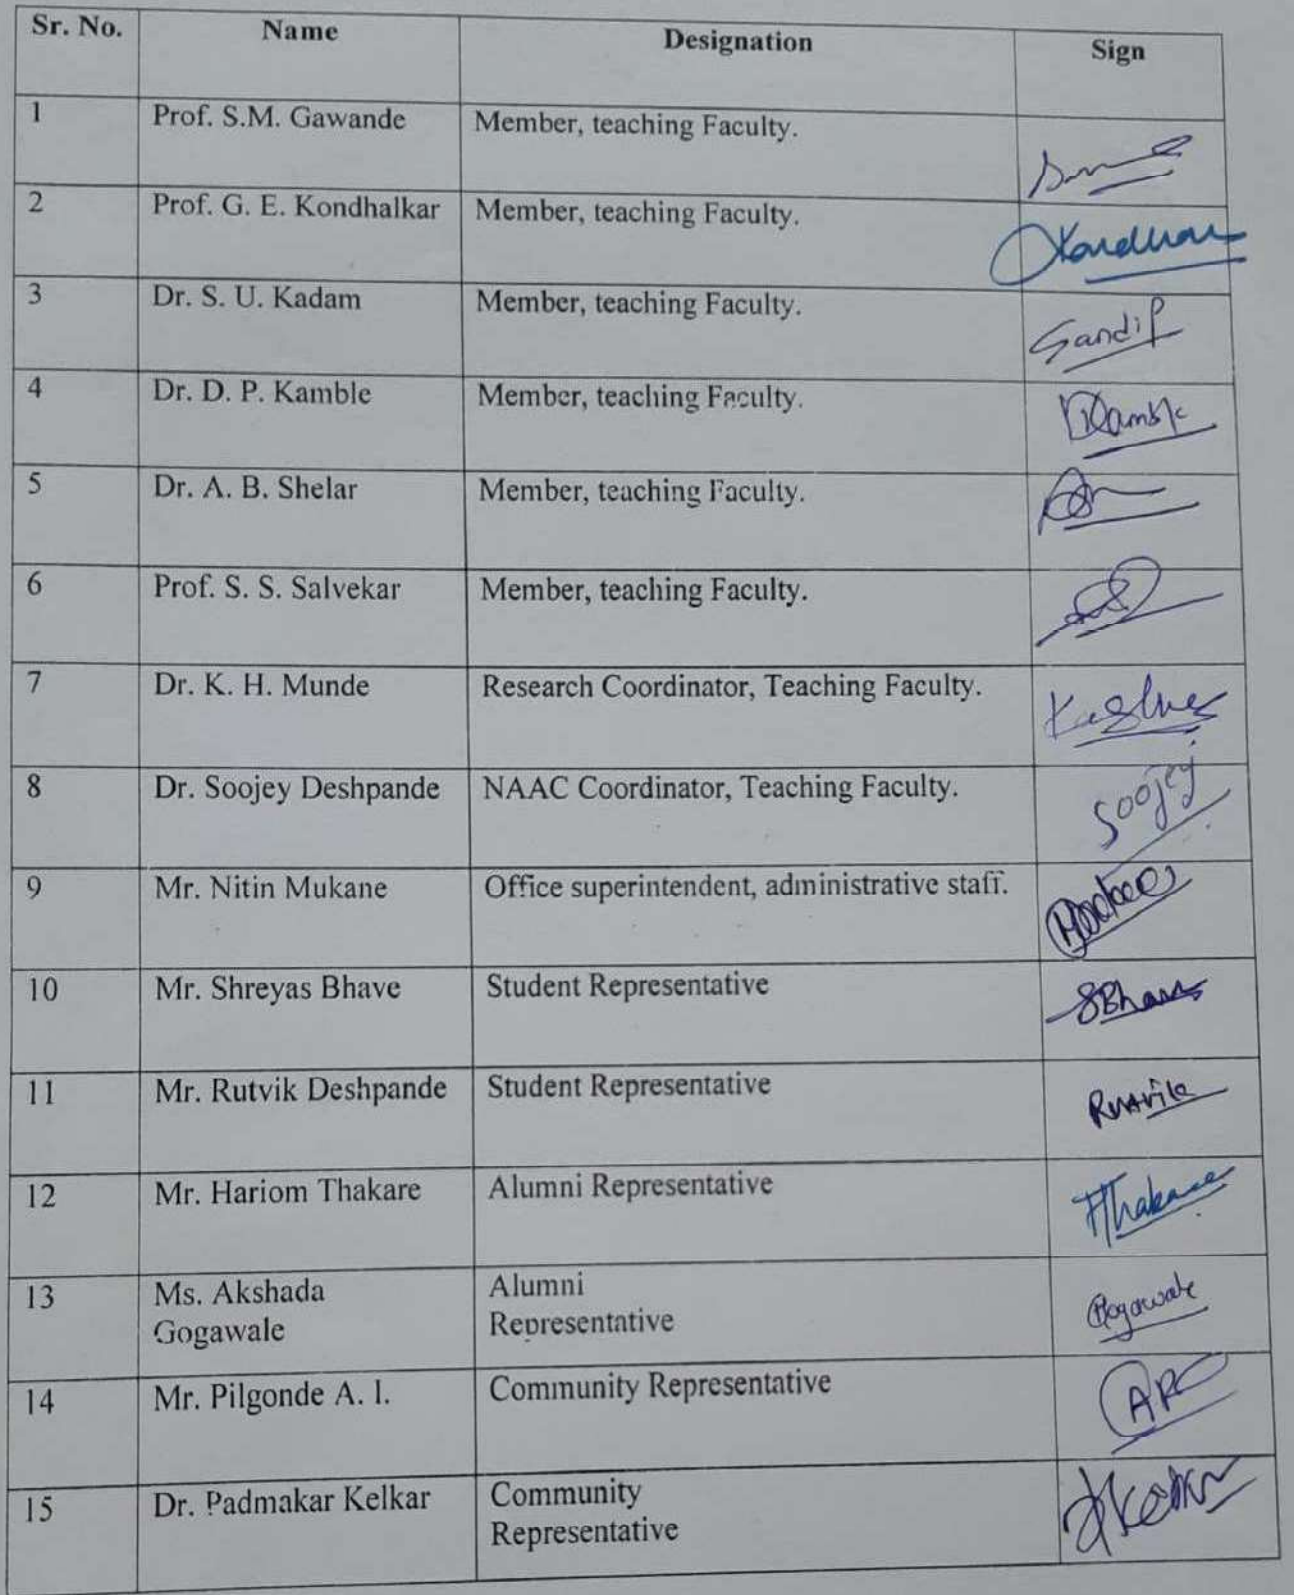 Sr. No. Name Designation Sign
1 Prof. S.M. Gawande Member, teaching Faculty.
2 Prof. G. E. Kondhalkar Member, teaching Faculty.
3 Dr. S. U. Kadam Member, teaching Faculty. Sandip
4 Dr. D. P. Kamble Member, teaching Faculty.
5 Dr. A. B. Shelar Member, teaching Faculty.
6 Prof. S. S. Salvekar Member, teaching Faculty.
7 Dr. K. H. Munde Research Coordinator, Teaching Faculty.
8 Dr. Soojey Deshpande NAAC Coordinator, Teaching Faculty. Soojey
9 Mr. Nitin Mukane Office superintendent, administrative staff.
10 Mr. Shreyas Bhave Student Representative
11 Mr. Rutvik Deshpande Student Representative
12 Mr. Hariom Thakare Alumni Representative HThakare
13 Ms. Akshada
Gogawale
Alumni
Representative
14 Mr. Pilgonde A. I. Community Representative
15 Dr. Padmakar Kelkar
Community
Representative